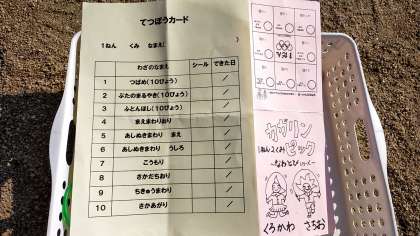 てつぼうカード
1ねん　くみ　なまえ(　　　)
わざのなまえ　シール　できた日
1　つばめ(10びょう)　/
2　ぶたのまるやき(10びょう)　/
3　ふとんほし(10びょう)　/
4　まえまわりおり　/
5　あしぬきまわり　まえ　/
6　あしぬきまわり　うしろ　/
7　こうもり　/
8　さかだちおり　/
9　ちきゅうまわり　/
10　さかあがり　/
カガリン
ピック
1ねん2くみ
〜なわとび
くろかわ　さちお